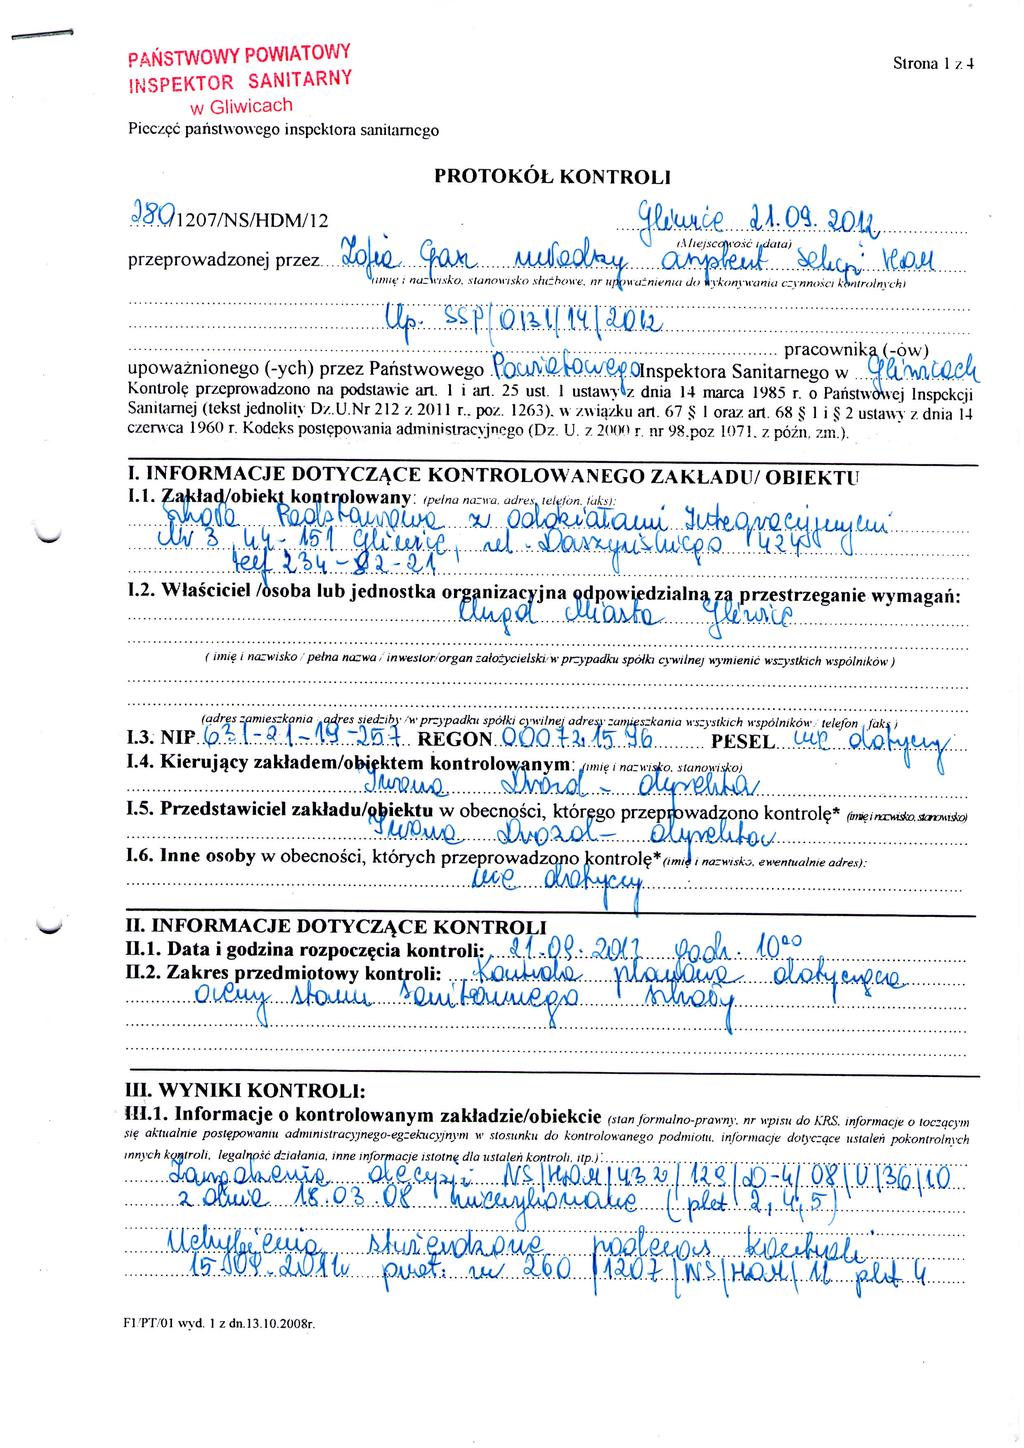 PAŃSTWOWY POWIATOWY
INSPEKTOR SANITARNY
w Gliwicach
Strona 1 z 4
Pieczęć państwowego inspektora sanitarnego
PROTOKÓŁ KONTROLI
280/1207/NS/HDM/12
Gliwice 21.09.2012
(Miejscowość i data)
przeprowadzonej przez Zofia młodszy asystent sekcji HDM
(imię i nazwisko, stanowisko służbowe, nr upoważnienia do wykonywania czynności kontrolnych)
Up. SSP/0131/14/2012
pracownika (-ów)
upoważnionego (-ych) przez Państwowego Powiatowego Inspektora Sanitarnego w Gliwicach
Kontrolę przeprowadzono na podstawie art. 1 i art. 25 ust. 1 ustawy z dnia 14 marca 1985 r. o Państwowej Inspekcji
Sanitarnej (tekst jednolity Dz.U.Nr 212 z 2011 r., poz. 1263), w związku art. 67 § 1 oraz art. 68 § 1 i § 2 ustawy z dnia 14
czerwca 1960 r. Kodeks postępowania administracyjnego (Dz. U. z 2000 r. nr 98,poz 1071, z późn. zm.).
I. INFORMACJE DOTYCZĄCE KONTROLOWANEGO ZAKŁADU/ OBIEKTU
I.1. Zakład/obiekt kontrolowany: (pełna nazwa, adres, telefon, faks):
Szkoła Podstawowa z Oddziałami Integracyjnymi
Nr 3, 44-151 Gliwice, ul. Daszyńskiego 424
tel. 234-82-21
I.2. Właściciel /osoba lub jednostka organizacyjna odpowiedzialna za przestrzeganie wymagań:
Urząd Miasta Gliwice
( imię i nazwisko / pełna nazwa / inwestor/organ założycielski/w przypadku spółki cywilnej wymienić wszystkich wspólników )
(adres zamieszkania , adres siedziby /w przypadku spółki cywilnej adresy zamieszkania wszystkich wspólników/ telefon , faks )
I.3. NIP 631-21-19-257 REGON 000721596 PESEL nie dotyczy
I.4. Kierujący zakładem/obiektem kontrolowanym: (imię i nazwisko, stanowisko)
Iwona - dyrektor
I.5. Przedstawiciel zakładu/obiektu w obecności, którego przeprowadzono kontrolę* (imię i nazwisko, stanowisko)
Iwona - dyrektor
I.6. Inne osoby w obecności, których przeprowadzono kontrolę*(imię i nazwisko, ewentualnie adres):
nie dotyczy
II. INFORMACJE DOTYCZĄCE KONTROLI
II.1. Data i godzina rozpoczęcia kontroli: 21.09.2012 godz. 10⁰⁰
II.2. Zakres przedmiotowy kontroli: Kontrola planowa dotycząca
oceny stanu sanitarnego szkoły
III. WYNIKI KONTROLI:
III.1. Informacje o kontrolowanym zakładzie/obiekcie (stan formalno-prawny, nr wpisu do KRS, informacje o toczącym
się aktualnie postępowaniu administracyjnego-egzekucyjnym w stosunku do kontrolowanego podmiotu, informacje dotyczące ustaleń pokontrolnych
innych kontroli, legalność działania, inne informacje istotne dla ustaleń kontroli, itp.):
Zarządzenie decyzji NS/HDM/432/129/D-4/08/U/36/10
z dnia 18.03.08 niezrealizowane (pkt 2, 4, 5)
Uchybienia stwierdzone podczas kontroli
15.09.2011r prot. nr 260/1207/NS/HDM/11 pkt 4
F1/PT/01 wyd. 1 z dn.13.10.2008r.